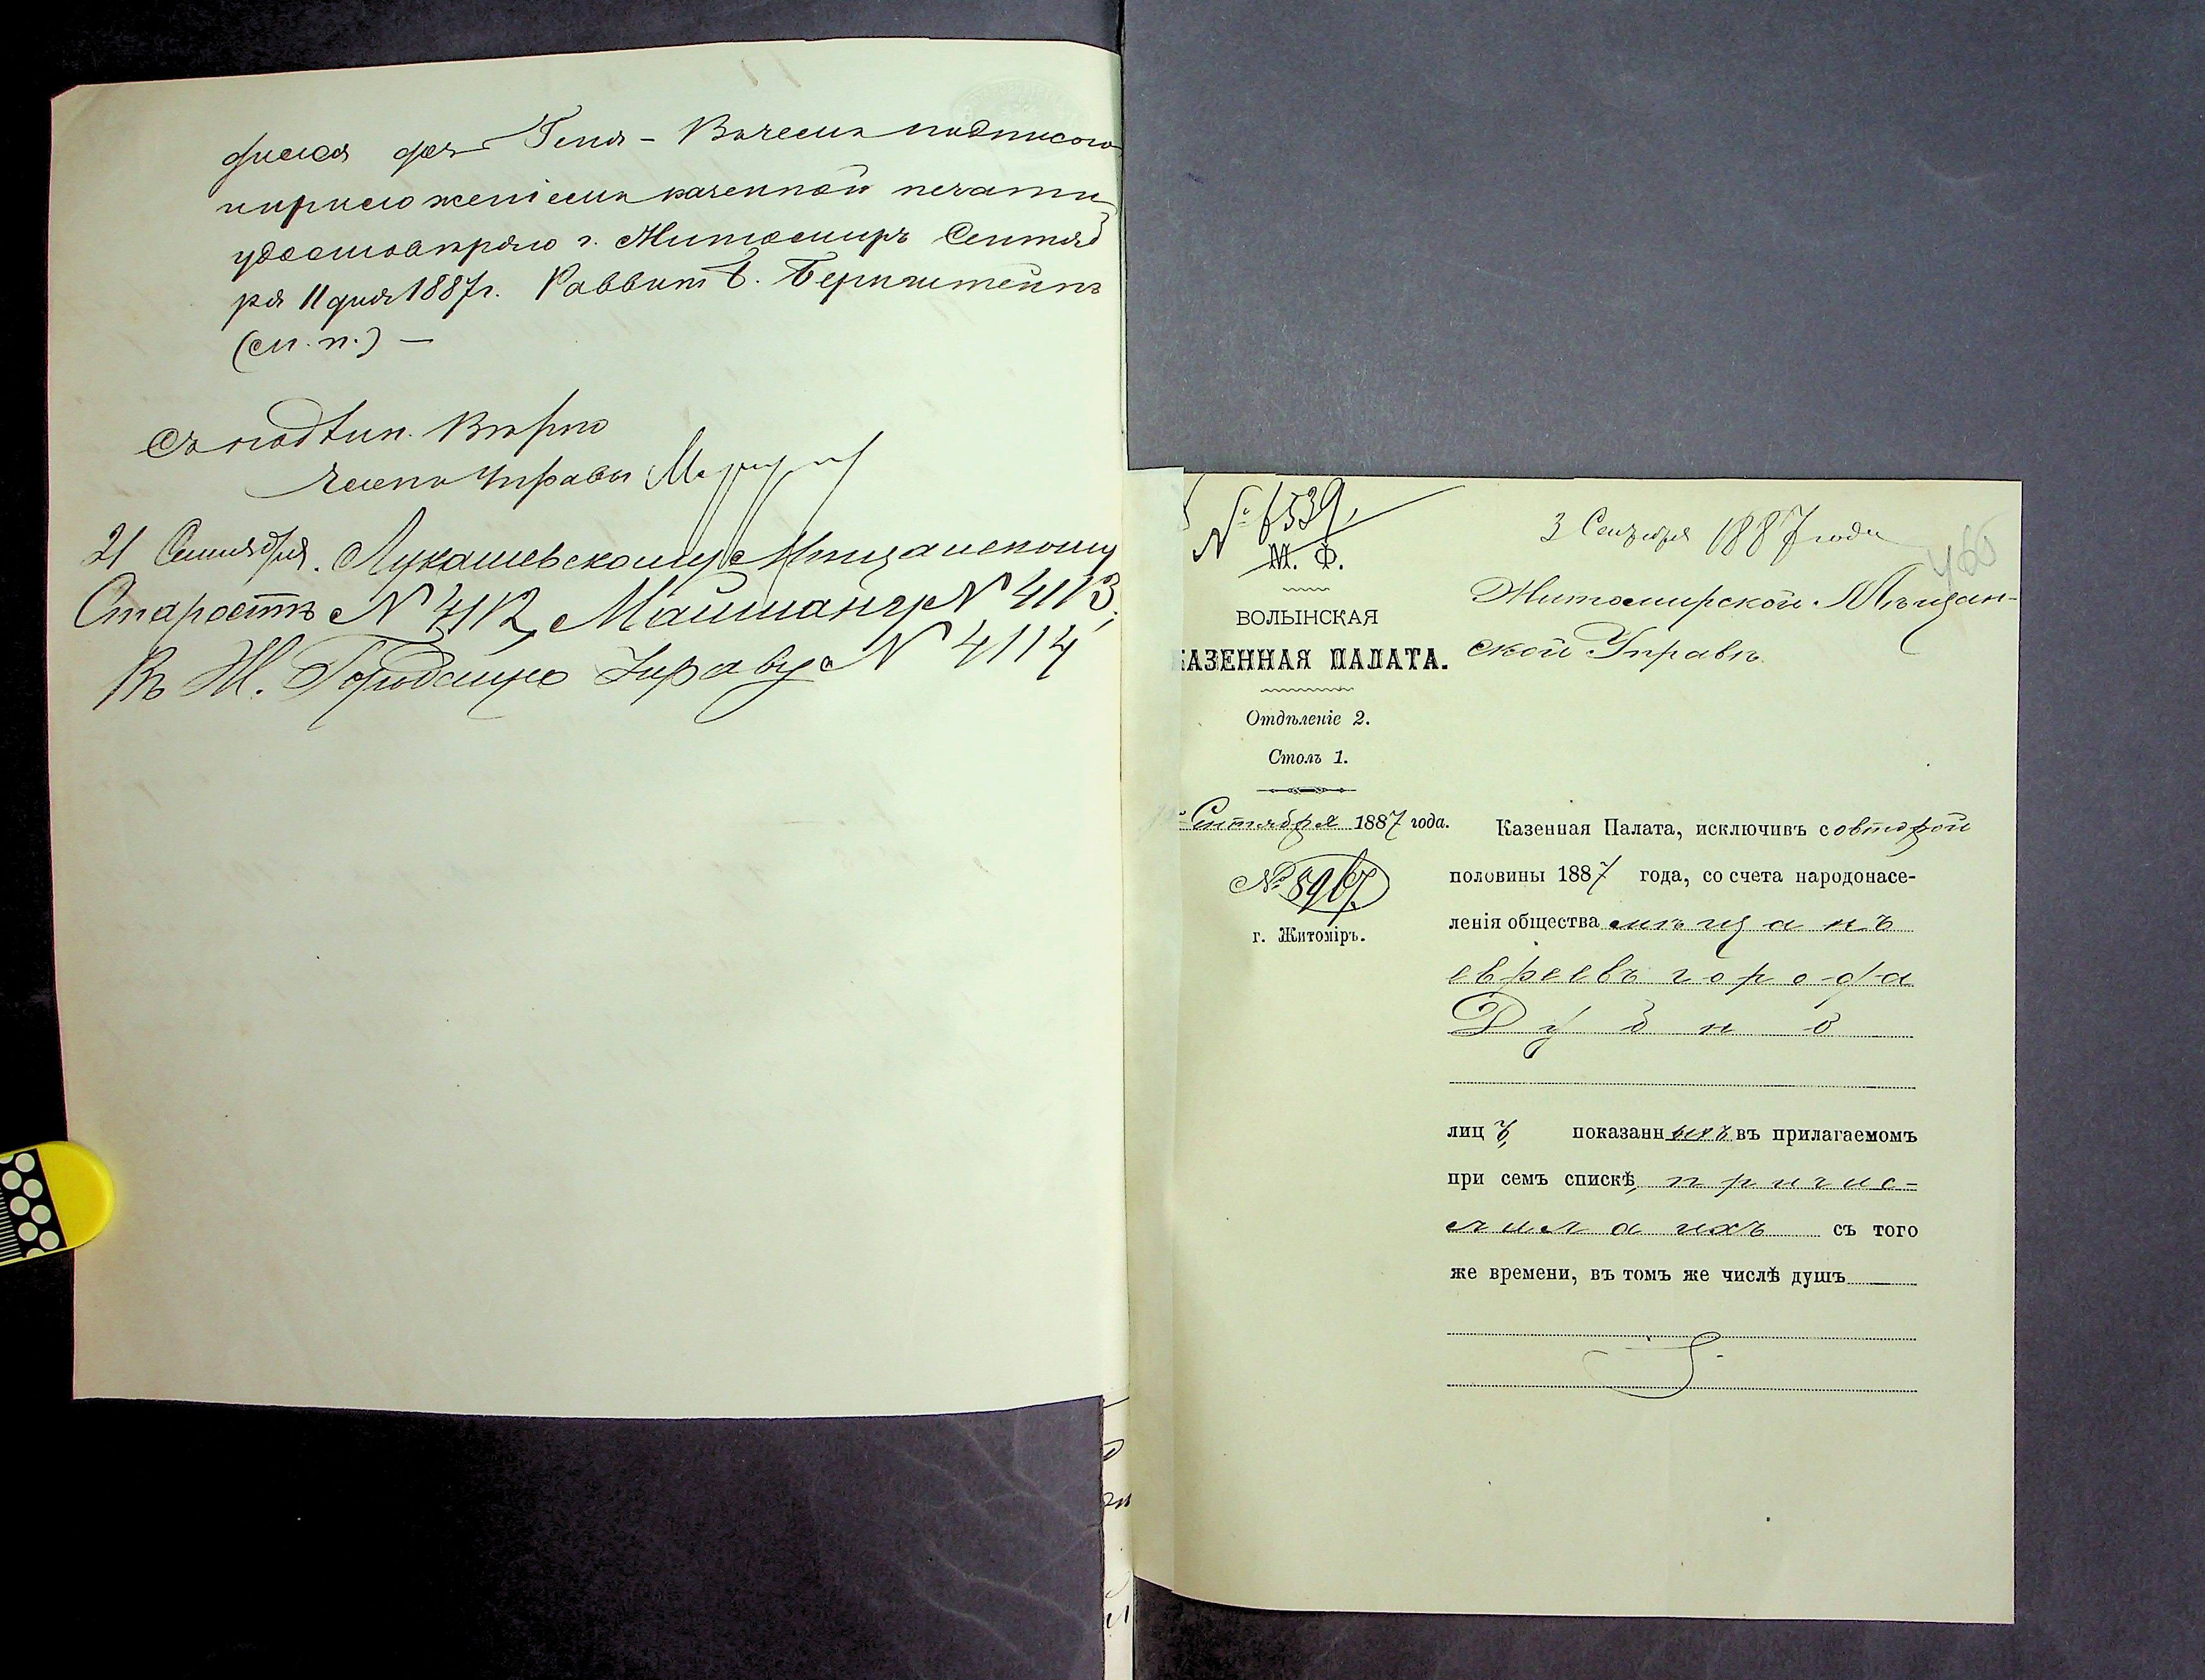 фися дня Геня - Вы чемъ подписью
и приложеніемъ казенной печати
удостовѣряю г. Житоміръ Сентяб
ря 11 дня 1887 г. Раввинъ Б. Бернштейнъ
(м. п.) —
Съ подлин. Вѣрно
Членъ Управы
21 Сентября. Лукашевскому Мѣщанскому
Старостѣ № 4112, № 4113,
Въ Ж. Городскую Управу № 4114
№ 6539,
М. Ф.
ВОЛЫНСКАЯ
КАЗЕННАЯ ПАЛАТА.
Отдѣленіе 2.
Столъ 1.
Сентября 1887 года.
№ 8967.
г. Житоміръ.
3 Сентября 1887 года
460
Житомирской Мѣщан-
ской Управѣ
Казенная Палата, исключивъ со второй
половины 1887 года, со счета народонасе-
ленія общества мѣщанъ
евреевъ города
Дубно
лицъ, показанныхъ въ прилагаемомъ
при семъ спискѣ, причис-
лила ихъ съ того
же времени, въ томъ же числѣ душъ